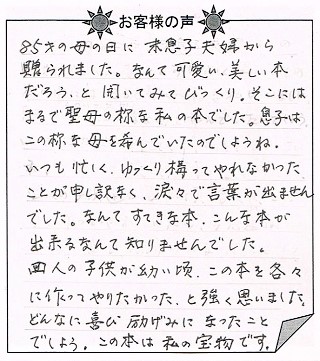 お客様の声
85才の母の日に 末息子夫婦から
贈られました。なんて可愛い、美しい本
だろう、と開いてみてびっくり。そこには
まるで聖母の様な私の本でした。息子は
この様な母を希んでいたのでしょうね。
いつも忙しく、ゆっくり構ってやれなかった
ことが申し訳なく、涙々で言葉が出ません
でした。なんてすてきな本、こんな本が
出来るなんて知りませんでした。
四人の子供が幼い頃、この本を各々
に作ってやりたかった、と強く思いました。
どんなに喜び 励げみになったこと
でしょう。この本は私の宝物です。